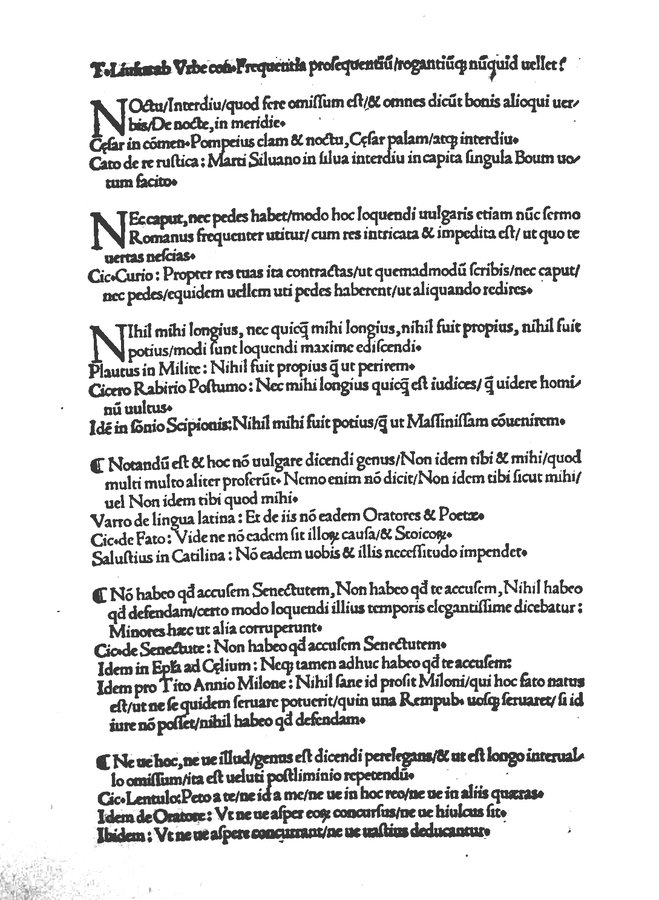 T. Liuius ab Vrbe con. Frequentia prosequentiũ/rogantiũq; nũquid uellet?
NOctu/Interdiu/quod fere omissum est/& omnes dicũt bonis alioqui uer-
bis/De nocte, in meridie.
Cęsar in cómen. Pompeius clam & noctu, Cęsar palam/atq; interdiu.
Cato de re rustica: Marti Siluano in silua interdiu in capita singula Boum uo-
tum facito.
NEc caput, nec pedes habet/modo hoc loquendi uulgaris etiam nũc sermo
Romanus frequenter utitur/ cum res intricata & impedita est/ ut quo te
uertas nescias.
Cic. Curio: Propter res tuas ita contractas/ut quemadmodũ scribis/nec caput/
nec pedes/equidem uellem uti pedes haberent/ut aliquando redires.
NIhil mihi longius, nec quicq̃ mihi longius, nihil fuit propius, nihil fuit
potius/modi sunt loquendi maxime ediscendi.
Plautus in Milite: Nihil fuit propius q̃ ut perirem.
Cicero Rabirio Postumo: Nec mihi longius quicq̃ est iudices/ q̃ uidere homi-
nũ uultus.
Idẽ in sõnio Scipionis: Nihil mihi fuit potius/q̃ ut Massinissam cõuenirem.
¶ Notandũ est & hoc nõ uulgare dicendi genus/Non idem tibi & mihi/quod
multi multo aliter proferũt. Nemo enim nõ dicit/Non idem tibi sicut mihi/
uel Non idem tibi quod mihi.
Varro de lingua latina: Et de iis nõ eadem Oratores & Poetæ.
Cic. de Fato: Vide ne nõ eadem sit illoꝝ causa/& Stoicoꝝ.
Salustius in Catilina: Nõ eadem uobis & illis necessitudo impendet.
¶ Nõ habeo qđ accusem Senectutem, Non habeo qđ te accusem, Nihil habeo
qđ defendam/certo modo loquendi illius temporis elegantissime dicebatur:
Minores hæc ut alia corruperunt.
Cic. de Senectute: Non habeo qđ accusem Senectutem.
Idem in Epła ad Cęlium: Neq; tamen adhuc habeo qđ te accusem:
Idem pro Tito Annio Milone: Nihil sane id prosit Miloni/qui hoc fato natus
est/ut ne se quidem seruare potuerit/quin una Rempub. uosq; seruaret/ si id
iure nõ posset/nihil habeo qđ defendam.
¶ Ne ue hoc, ne ue illud/genus est dicendi perelegans/& ut est longo interual-
lo omissum/ita est ueluti postliminio repetendũ.
Cic. Lentulo: Peto a te/ne id a me/ne ue in hoc reo/ne ue in aliis quæras.
Idem de Oratore: Vt ne ue asper eoꝝ concursus/ne ue hiulcus sit.
Ibidem: Vt ne ue aspere concurrant/ne ue uastius deducantur.